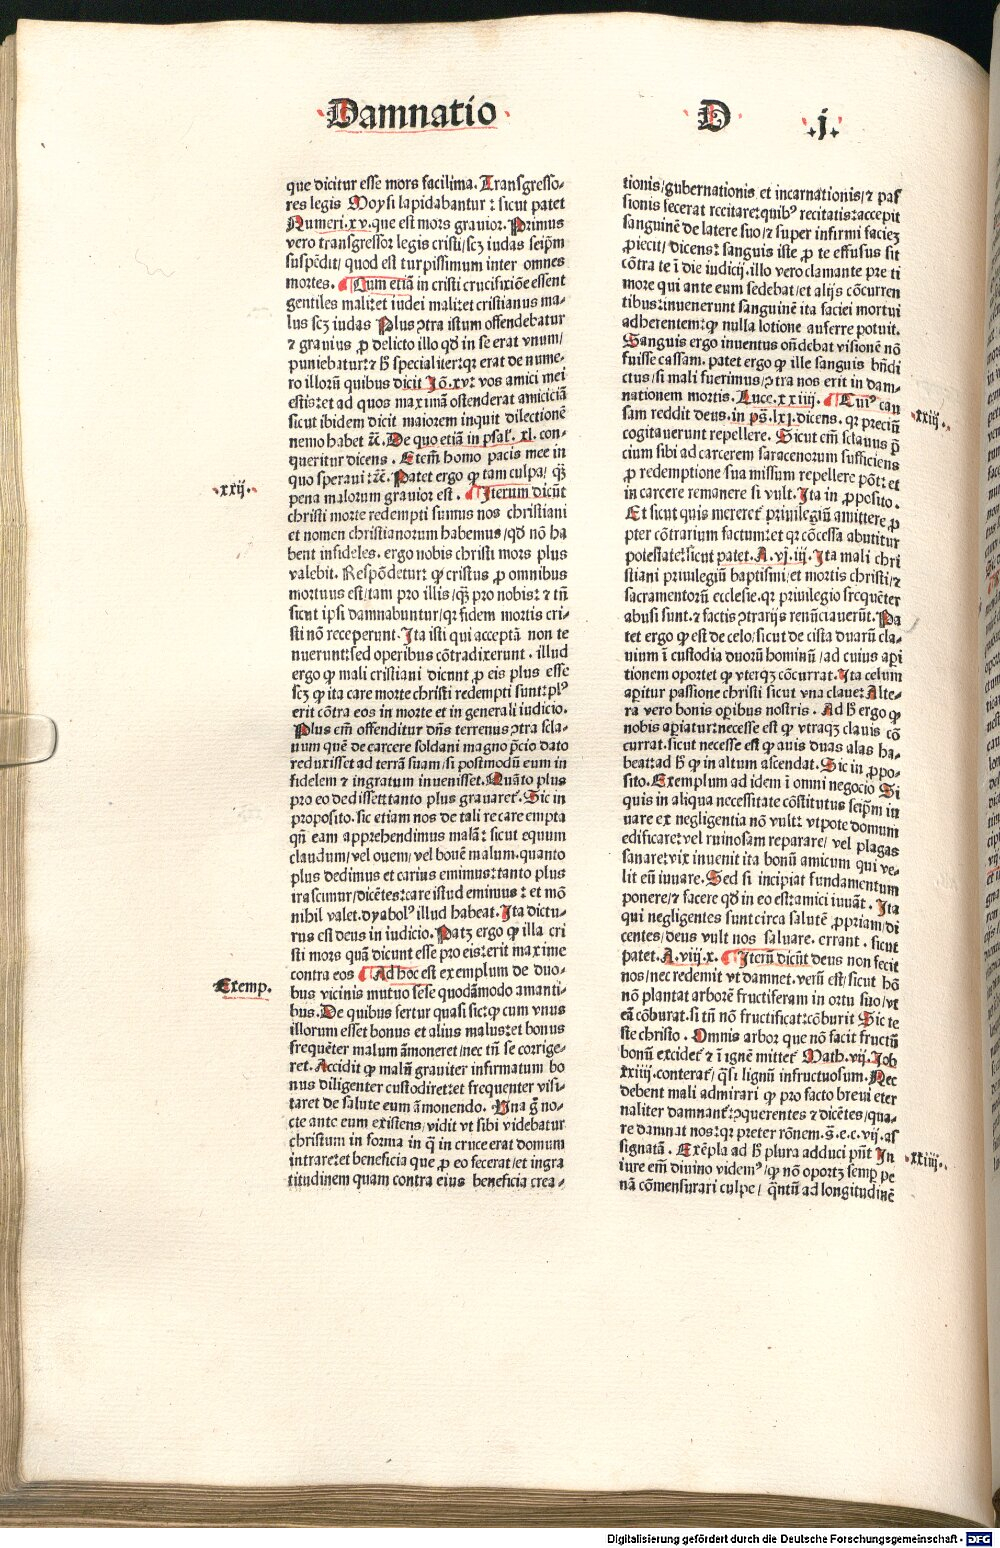 Damnatio
D
.j.
que dicitur esse mors facilima. Transgresso⸗
res legis Moysi lapidabantur : sicut patet
Numeri.xv.que est mors grauior. Primus
vero transgressor legis cristi/scz iudas seip̄m
suspēdit/ quod est turpissimum inter omnes
mortes. Cum etiā in cristi crucifixiōe essent
gentiles mali:et iudei mali:et cristianus ma⸗
lus scz iudas Plus ꝯtra istum offendebatur
⁊ grauius ꝓ delicto illo qd̄ in se erat vnum/
puniebatur:⁊ h̄ specialiter:qr erat de nume⸗
ro illorū quibus dicit Jō.xv: vos amici mei
estis:et ad quos maximā ostenderat amiciciā
sicut ibidem dicit maiorem inquit dilectionē
nemo habet ⁊c̄. De quo etiā in psal'. xl. con⸗
queritur dicens . Etem̄ homo pacis mee in
quo speraui:⁊c̄. Patet ergo ꝙ tam culpa/ q̄ꝫ
.xxij.
pena malorum grauior est . Jterum dicūt
christi morte redempti sumus nos christiani
et nomen christianorum habemus/qd̄ nō ha
bent infideles. ergo nobis christi mors plus
valebit. Respōdetur: ꝙ cristus ꝓ omnibus
mortuus est/tam pro illis/q̄ꝫ pro nobis: ⁊ tn̄
sicut ipsi damnabuntur/qr fidem mortis cri⸗
sti nō receperunt. Jta isti qui acceptā non te
nuerunt:sed operibus cōtradixerunt . illud
ergo ꝙ mali cristiani dicunt ꝓ eis plus esse
scz ꝙ ita care morte christi redempti sunt:pl⁹
erit cōtra eos in morte et in generali iudicio.
Plus em̄ offenditur dn̄s terrenus ꝯtra scla⸗
uum quē de carcere soldani magno p̄cio dato
reduxisset ad terrā suam/si postmodū eum in
fidelem ⁊ ingratum inuenisset. Quāto plus
pro eo dedisset:tanto plus grauaret᷑. Sic in
proposito. sic etiam nos de tali re care empta
qn̄ eam apprehendimus malā: sicut equum
claudum/vel ouem/vel bouē malum.quanto
plus dedimus et carius emimus:tanto plus
irascimur/dicētes:care istud emimus : et mō
nihil valet.dyabol⁹ illud habeat. Jta dictu⸗
rus est deus in iudicio. Patꝫ ergo ꝙ illa cri
sti mors quā dicunt esse pro eis:erit maxime
contra eos Ad hoc est exemplum de duo⸗
Exemp.
bus vicinis mutuo sese quodāmodo amanti⸗
bus. De quibus fertur quasi sic:ꝙ cum vnus
illorum esset bonus et alius malus:et bonus
frequēter malum āmoneret/nec tn̄ se corrige⸗
ret. Accidit ꝙ malū grauiter infirmatum bo
nus diligenter custodiret:et frequenter visi⸗
taret de salute eum āmonendo. Una ḡ no⸗
cte ante eum existens/vidit vt sibi videbatur
christum in forma in q̄ in cruce erat domum
intrare:et beneficia que ꝓ eo fecerat/et ingra
titudinem quam contra eius beneficia crea⸗
tionis/gubernationis et incarnationis/⁊ pas
sionis fecerat recitare:quib⁹ recitatis:accepit
sanguinē de latere suo/⁊ super infirmi faciez
ꝓiecit/dicens: sanguis iste ꝓ te effusus sit
cōtra te ī die iudicij.illo vero clamante pre ti
more qui ante eum sedebat/et alijs cōcurren
tibus:inuenerunt sanguinē ita faciei mortui
adherentem:ꝙ nulla lotione auferre potuit.
Sanguis ergo inuentus on̄debat visionē nō
fuisse cassam. patet ergo ꝙ ille sanguis bn̄di
ctus/si mali fuerimus/ꝯtra nos erit in dam⸗
nationem mortis. Luce.xxiiij. Cui⁹ cau
.xxiij.
sam reddit deus.in ps̄.lxj.dicens. qr preciū
cogitauerunt repellere. Sicut em̄ sclauus p̄
cium sibi ad carcerem saracenorum sufficiens
ꝓ redemptione sua missum repellere pōt: et
in carcere remanere si vult. Jta in ꝓposito.
Et sicut quis meret᷑ priuilegiū amittere ꝓ
pter cōtrarium factum:et qr cōcessa abutitur
potestate:sicut patet. A.vj.iij. Jta mali chri
stiani priuilegiū baptismi/et mortis christi/⁊
sacramentorū ecclesie.qr priuilegio frequēter
abusi sunt.⁊ factis ꝯtrarijs renūciauerūt. Pa
tet ergo ꝙ est de celo/sicut de cista duarū cla⸗
uium ī custodia duorū hominū/ad cuius aꝑi
tionem oportet ꝙ vterqꝫ cōcurrat. Jta celum
aꝑitur passione christi sicut vna claue: Alte⸗
ra vero bonis oꝑibus nostris . Ad h̄ ergo ꝙ
nobis aꝑiatur:necesse est ꝙ vtraqꝫ clauis cō
currat.sicut necesse est ꝙ auis duas alas ha⸗
beat:ad h̄ ꝙ in altum ascendat. Sic in ꝓpo⸗
sito. Exemplum ad idem ī omni negocio Si
quis in aliqua necessitate cōstitutus seip̄m iu
uare ex negligentia nō vult: vtpote domum
edificare:vel ruinosam reparare/ vel plagas
sanare:vix inuenit ita bonū amicum qui ve⸗
lit eū iuuare. Sed si incipiat fundamentum
ponere/⁊ facere qd̄ in eo est:amici iuuāt . Jta
qui negligentes sunt circa salutē ꝓpriam/di
centes/deus vult nos saluare. errant . sicut
patet. A.viij.x. Jterū dicūt deus non fecit
nos/nec redemit vt damnet.verū est/sicut hō
nō plantat arborē fructiferam in orto suo/vt
eā cōburat.si tn̄ nō fructificat:cōburit Sic te
ste christo . Omnis arbor que nō facit fructū
bonū excidet᷑ ⁊ ī ignē mittet᷑ Math.vij. Job
xxiiij.conterat᷑/ q̄si lignū infructuosum. Nec
debent mali admirari ꝙ pro facto breui eter
naliter damnant᷑:ꝯquerentes ⁊ dicētes/qua⸗
re damnat nos:qr preter rōnem.ḡ.e.c.vij.as
signatā . Exēpla ad h̄ plura adduci pn̄t Jn
.xxiiij.
iure em̄ diuino videm⁹/ꝙ nō oportꝫ semꝑ pe
nā cōmensurari culpe/ q̄ntū ad longitudinē
Digitalisierung gefördert durch die Deutsche Forschungsgemeinschaft - DFG